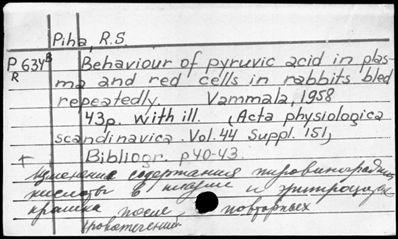 Piha, R.S.
P 634 B Behaviour of pyruvic acid in plas-
R ma and red cells in rabbits bled
repeatedly. Vammala, 1958
43p. with ill. (Acta physiologica
scandinavica. Vol. 44 Suppl. 151)
Bibliogr. p 40-43.
Изменение содержания пировиноградной
кислоты в плазме и эритроцитах
кролика после повторных
кровотечений